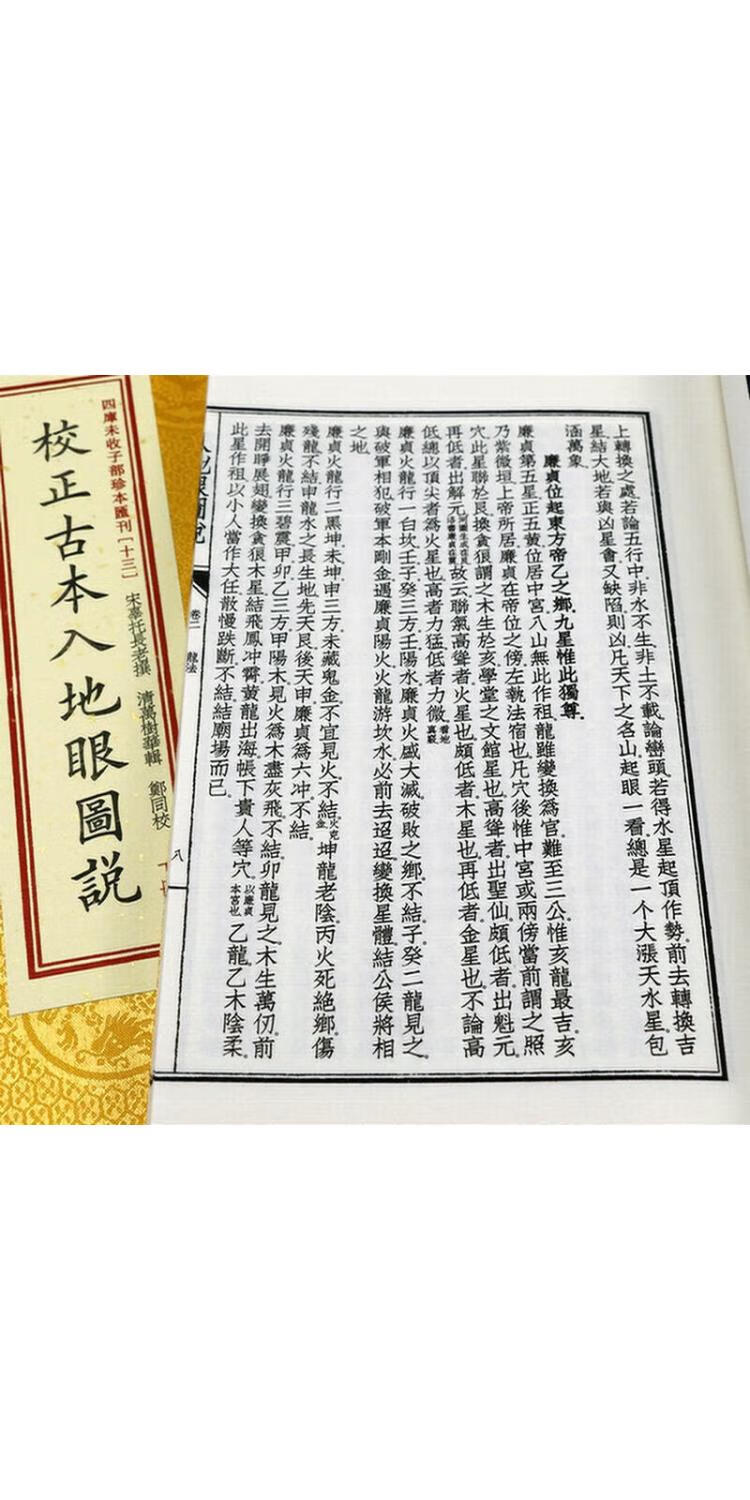 四庫未收子部珍本匯刊〔十三〕
校正古本入地眼圖説
宋辜托長老撰　清萬樹華輯　鄭同校
上轉換之處若論五行中非水不生非土不載論巒頭若得水星起頂作勢前去轉換吉
星結大地若與凶星會又缺陷則凶凡天下之名山起眼一看總是一个大漲天水星包
涵萬象
廉貞位起東方帝乙之鄉九星惟此獨尊
廉貞第五星正五黄位居中宮八山無此作祖龍雖變換爲官難至三公惟亥龍最吉亥
乃紫微垣上帝所居廉貞在帝位之傍左執法宿也凡穴後惟中宮或兩傍當前謂之照
穴此星聯於艮換貪狼謂之木生於亥學堂之文館星也高聳者出聖仙頗低者出魁元
再低者出解元故云聯氣高聳者火星也頗低者木星也再低者金星也不論高
低總以頂尖者爲火星也高者力猛低者力微看地真竅
廉貞火龍行一白坎壬子癸三方壬陽水廉貞火威大減破敗之鄉不結子癸二龍見之
與破軍相犯破軍本剛金遇廉貞陽火火龍游坎水必前去迢迢變換星體結公侯將相
之地
廉貞火龍行二黑坤未坤申三方未藏鬼金不宜見火不結火克金坤龍老陰丙火死絕鄉傷
殘龍不結申龍水之長生地先天艮後天申廉貞爲六冲不結
廉貞火龍行三碧震甲卯乙三方甲陽木見火爲木盡灰飛不結卯龍見之木生萬仞前
去開睜展翅變換貪狼木星結飛鳳冲霄黄龍出海帳下貴人等穴以廉貞本宮也乙龍乙木陰柔
此星作祖以小人當作大任散慢跌斷不結結廟場而已
卷二　龍法
八